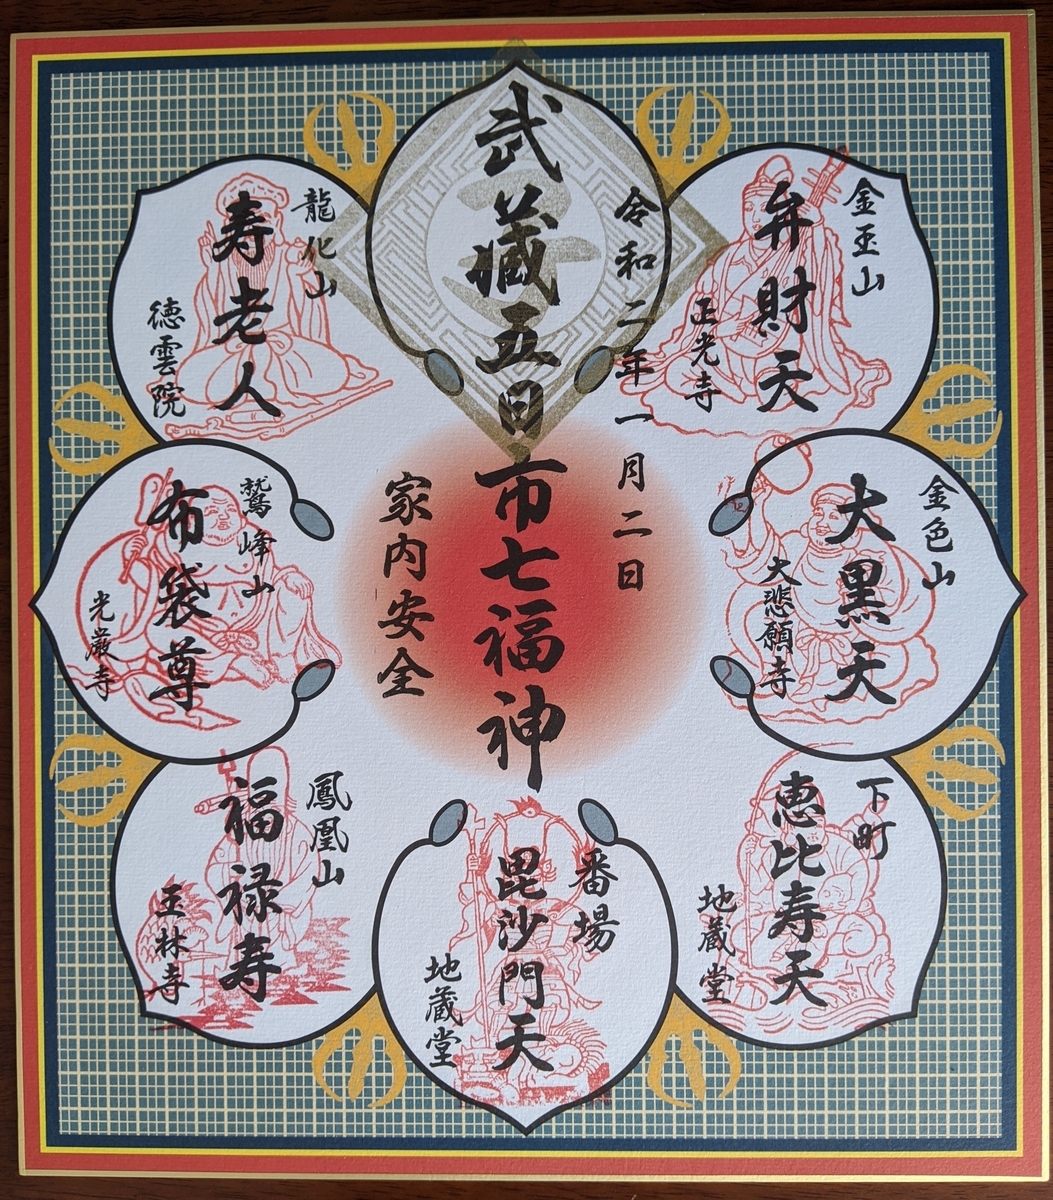 武蔵五日市七福神
令和二年一月二日
家内安全
金玉山
弁財天
正光寺
金色山
大黒天
大悲願寺
下町
恵比寿天
地蔵堂
番場
毘沙門天
地蔵堂
鳳凰山
福禄寿
玉林寺
鷲峰山
布袋尊
光厳寺
龍化山
寿老人
徳雲院